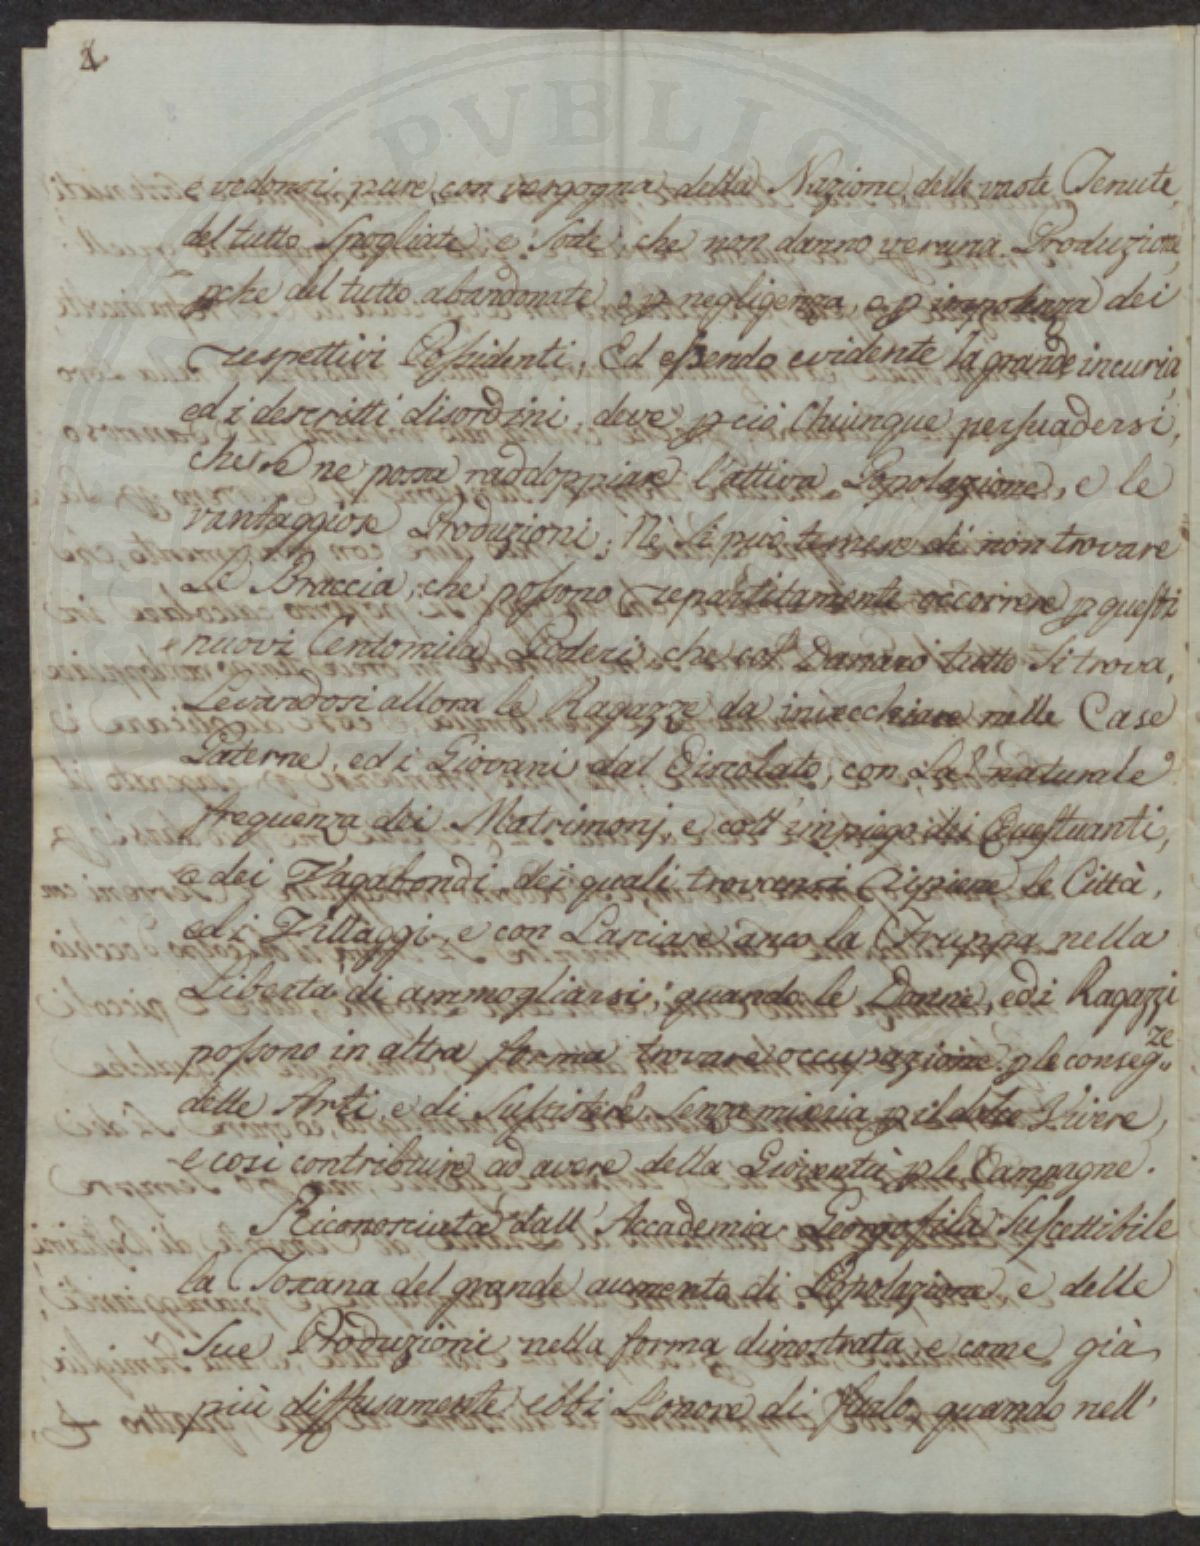 e vedonsi pure con vergogna della Nazione, delle vaste Tenute,
del tutto Spogliate, e Sode, che non danno veruna Produzione
pche del tutto abandonate o p negligenza, o p impotenza dei
respettivi Possidenti. Ed essendo evidente la grande incuria,
ed i descritti disordini, deve pciò Chiunque persuadersi,
che se ne possa raddoppiare l'attiva Popolazione, e le
vantaggiose Produzioni; Nè si può temere di non trovare
Le Braccia, che possono repartitamente occorrere p questi
nuovi Centomila Poderi, che col Danaro tutto si trova,
Levandosi allora le Ragazze da invecchiare nelle Case
Paterne, ed i Giovani dal Discolato, con La naturale
frequenza dei Matrimonj, e coll' impiego dei Questuanti,
e dei Vagabondi, dei quali trovansi ripiene le Città,
ed i Villaggi, e con Lasciare anco la Truppa nella
Libertà di ammogliarsi, quando le Donne, ed i Ragazzi
possono in altra forma trovare occupazione p le conseg.ze
delle Arti, e di Sussistere senza miseria p il dolce Vivere,
e così contribuire ad avere della Gioventù p le Campagne.
Riconosciuta dall' Accademia Georgofila Suscettibile
la Toscana del grande aumento di Popolazione e delle
Sue Produzioni nella forma dimostrata, e come già
più diffusamente ebbi L'onore di farlo, quando nell'